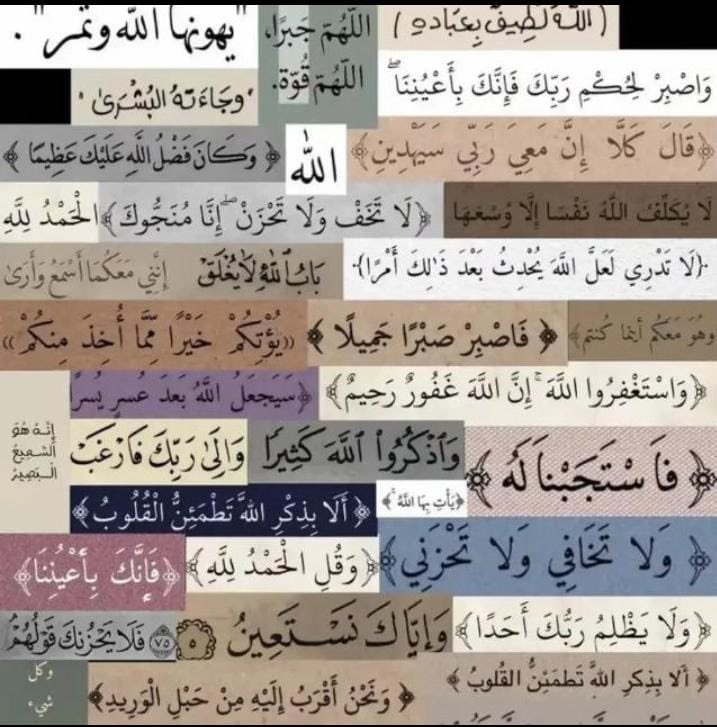 ﴿ اللَّهُ لَطِيفٌ بِعِبَادِهِ ﴾
اللَّهُمَّ جَبرًا،
اللَّهُمَّ قُوّة.
"يهونها الله وتمر".
وَاصْبِرْ لِحُكْمِ رَبِّكَ فَإِنَّكَ بِأَعْيُنِنَا ۖ
"وَجَاءَتهُ البُشْرَىٰ"
﴿قَالَ كَلَّا إِنَّ مَعِيَ رَبِّي سَيَهْدِينِ﴾
الله
﴿ وَكَانَ فَضْلُ اللَّهِ عَلَيْكَ عَظِيمًا ﴾
لَا يُكَلِّفُ اللَّهُ نَفْسًا إِلَّا وُسْعَهَا
﴿لَا تَخَفْ وَلَا تَحْزَنْ ۖ إِنَّا مُنَجُّوكَ﴾
الْحَمْدُ لِلَّهِ
﴿لَا تَدْرِي لَعَلَّ اللَّهَ يُحْدِثُ بَعْدَ ذَٰلِكَ أَمْرًا﴾
بَابُ اللهِ لَا يُغْلَقْ
إِنَّنِي مَعَكُمَا أَسْمَعُ وَأَرَىٰ
وَهُوَ مَعَكُم أَينَما كُنتُم﴾
﴿ فَاصْبِرْ صَبْرًا جَمِيلًا ﴾
«يُؤْتِكُمْ خَيْرًا مِّمَّا أُخِذَ مِنكُمْ»
﴿وَاسْتَغْفِرُوا اللَّهَ ۚ إِنَّ اللَّهَ غَفُورٌ رَحِيمٌ﴾
﴿سَيَجعَلُ اللَّهُ بَعدَ عُسرٍ يُسرًا
إِنَّهُ هُوَ
السَّمِيعُ
البَصِيرُ
﴿ فَاسْتَجَبْنَا لَهُ ﴾
وَٱذْكُرُوا۟ ٱللَّهَ كَثِيرًا
وَإِلَىٰ رَبِّكَ فَارْغَبْ
﴿يَأْتِ بِهَا اللَّهُ ۚ﴾
﴿ أَلَا بِذِكْرِ اللَّهِ تَطْمَئِنُّ الْقُلُوبُ ﴾
﴿ وَلَا تَخَافِي وَلَا تَحْزَنِي ﴾
﴿وَقُلِ الْحَمْدُ لِلَّهِ﴾
﴿فَإِنَّكَ بِأَعْيُنِنَا﴾
﴿وَلَا يَظْلِمُ رَبُّكَ أَحَدًا﴾
وَإِيَّاكَ نَسْتَعِينُ ٥
٧٥ فَلَا يَحْزُنكَ قَوْلُهُمْ
﴿ أَلا بِذِكرِ اللَّهِ تَطمَئِنُّ القُلوبُ ﴾
﴿ وَنَحْنُ أَقْرَبُ إِلَيْهِ مِنْ حَبْلِ الْوَرِيدِ ﴾
وكل
شيء